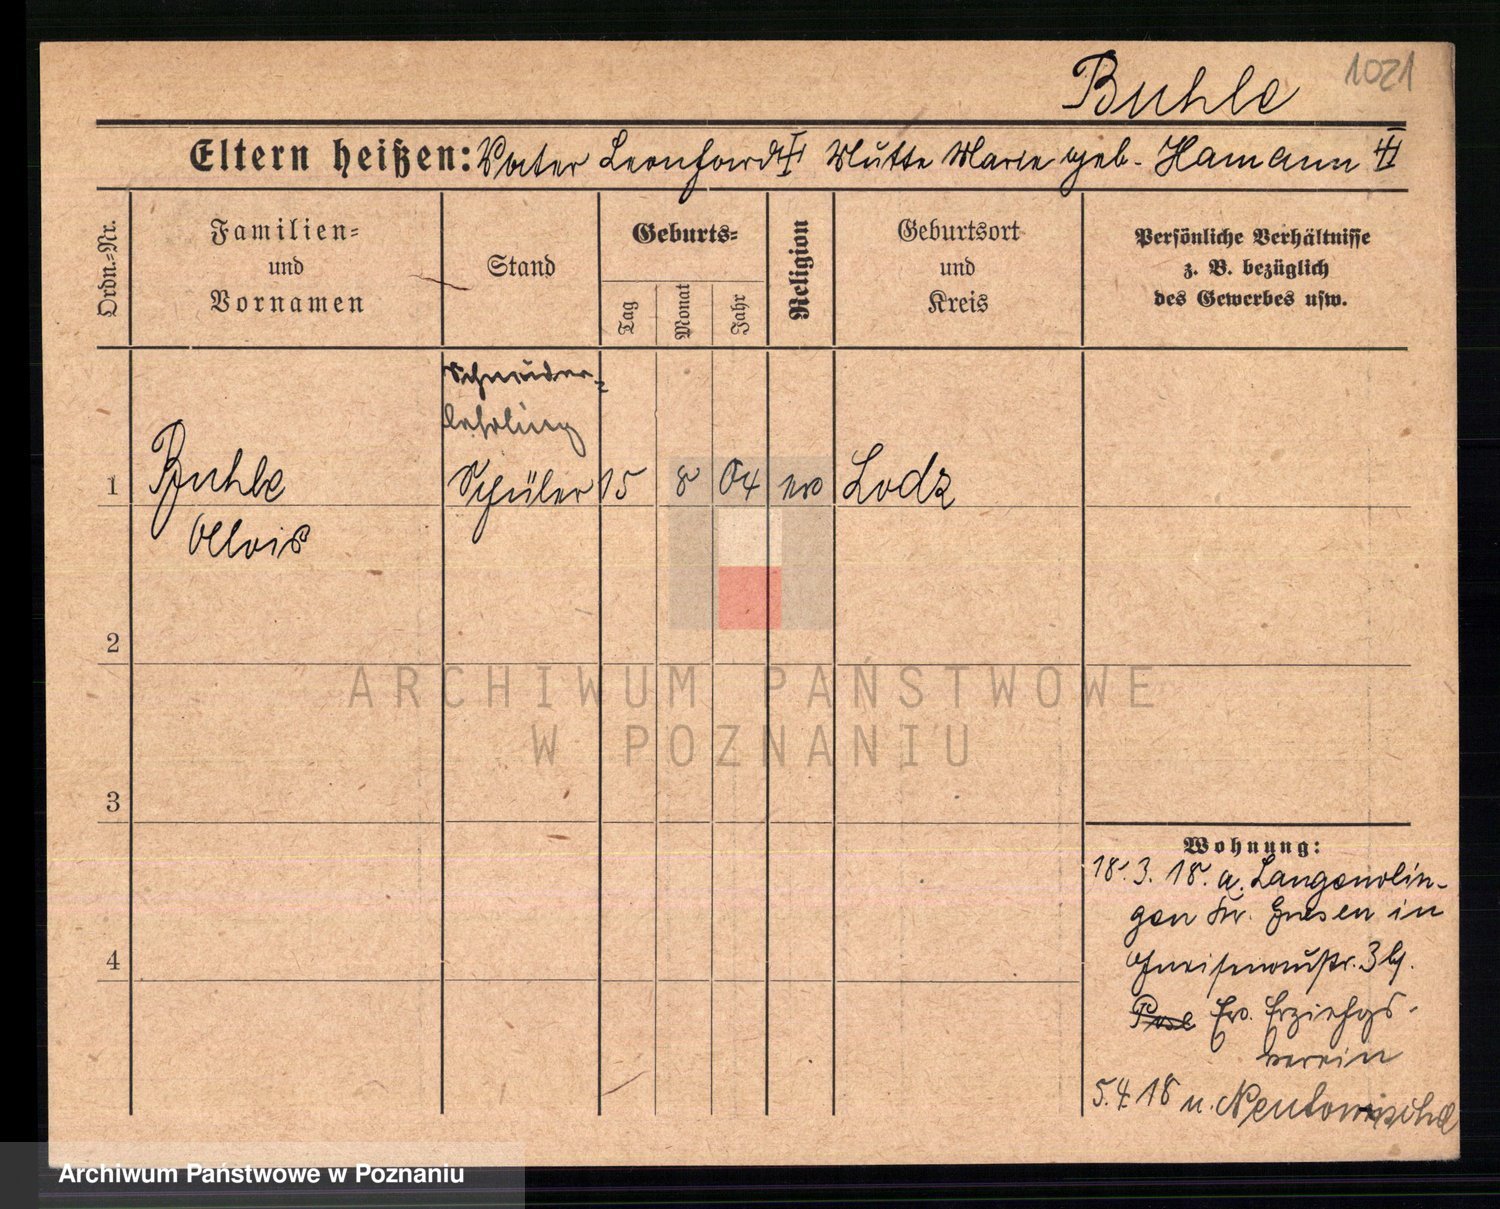 Buhle
1021
Eltern heißen: Vater Leonhard † Mutte Marie geb. Hamann †
Ordn.-Nr.
Familien-
und
Vornamen
Stand
Geburts-
Tag
Monat
Jahr
Religion
Geburtsort
und
Kreis
Persönliche Verhältnisse
z. B. bezüglich
des Gewerbes usw.
Schneider-
lehrling
1 Buhle Schüler 15 8 04 ev Lodz
Alois
2
3
4
ARCHIWUM PAŃSTWOWE
W POZNANIU
Wohnung:
18.3.18. a. Langenolin-
gen Kr. Gnesen in
Gneisenaustr. 3
Ev. Erziehgs-
verein
5.4.18 n. Neutomischel
Archiwum Państwowe w Poznaniu